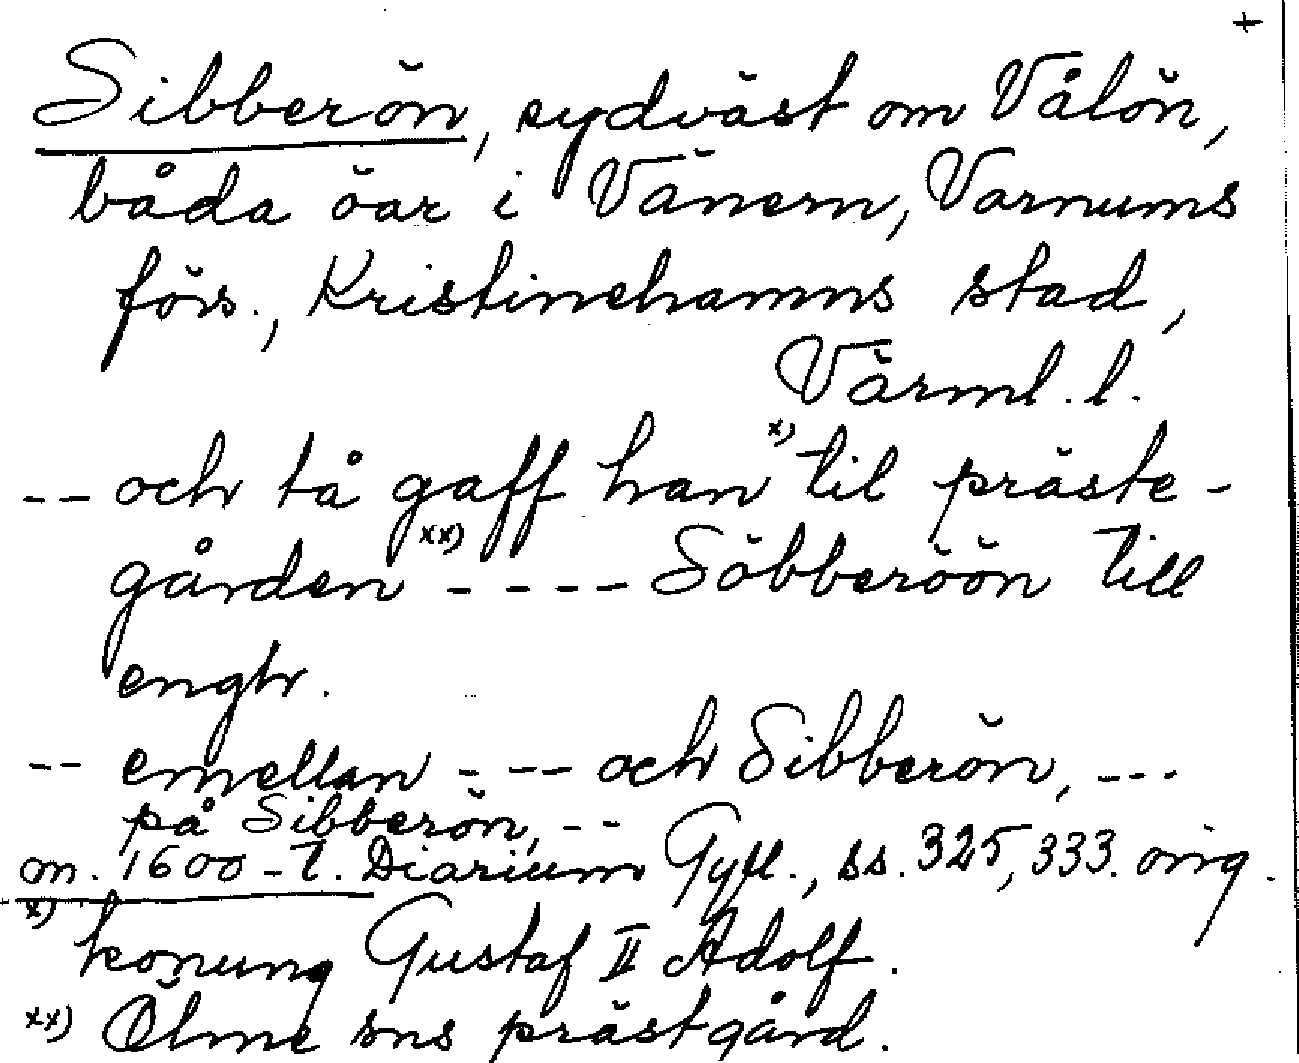 +
Sibberön, sydväst om Vålön,
båda öar i Vänern, Varnums
förs., Kristinehamns stad,
Värml. l.
-- och tå gaff han x) til präste-
gården xx) ---- Söbberöön till
engtr.
-- emellan --- och Sibberön, ---
på Sibberön, --
m. 1600-t. Diarium Gyll., ss. 325, 333. orig.
x) konung Gustaf II Adolf.
xx) Ölme sns prästgård.